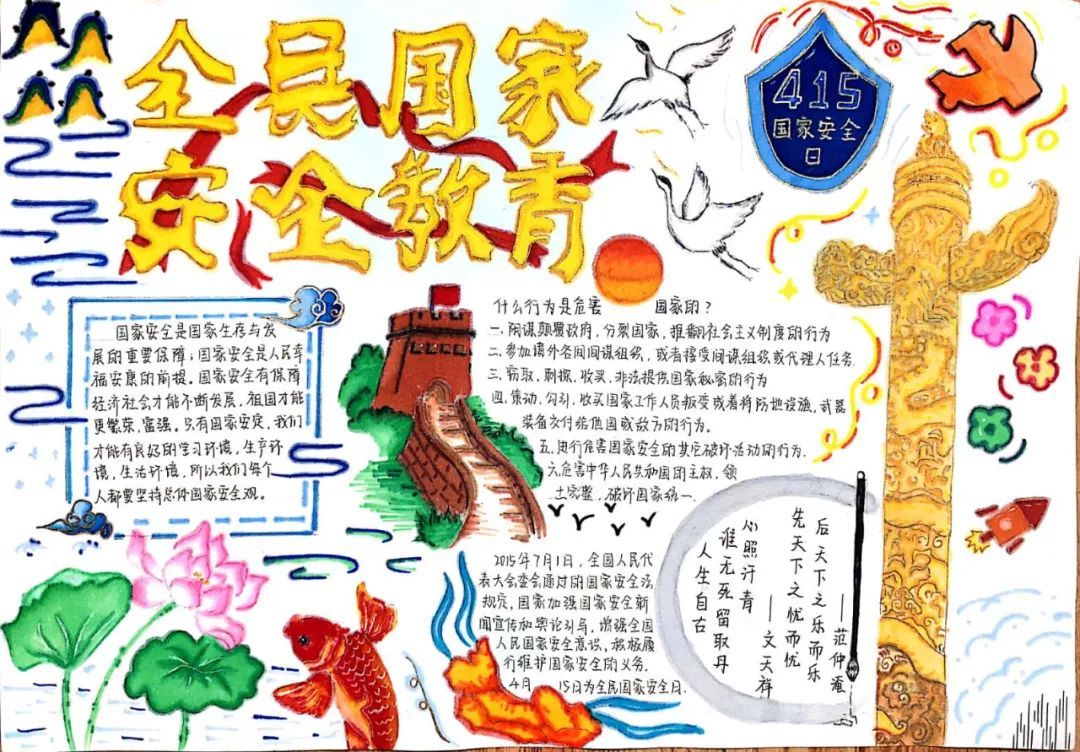 全民国家
安全教育
415
国家安全
日
国家安全是国家生存与发
展的重要保障；国家安全是人民幸
福安康的前提。国家安全有保障
经济社会才能不断发展，祖国才能
更繁荣，富强。只有国家安定，我们
才能有良好的学习环境，生产环
境，生活环境，所以我们每个
人都要坚持总体国家安全观。
什么行为是危害 国家的？
一、阴谋颠覆政府，分裂国家，推翻社会主义制度的行为
二、参加境外各间间谍组织，或者接受间谍组织或代理人任务.
三、窃取，刺探，收买，非法提供国家秘密的行为
四、策动、勾引、收买国家工作人员叛变或着将防地设施，武器
装备交付给他国或敌方的行为。
五、进行危害国家安全的其它破坏活动的行为.
六、危害中华人民共和国的主权，领
土完整，破坏国家统一.
2015年7月1日，全国人民代
表大会委会通过的国家安全法
规定，国家加强国家安全新
闻宣传和舆论引导，增强全国
人民国家安全意识，积极履
行维护国家安全的义务.
4月 15日为全民国家安全日.
后天下之乐而乐
——范仲淹
先天下之忧而忧
——文天祥
心照汗青
谁无死留取丹
人生自古